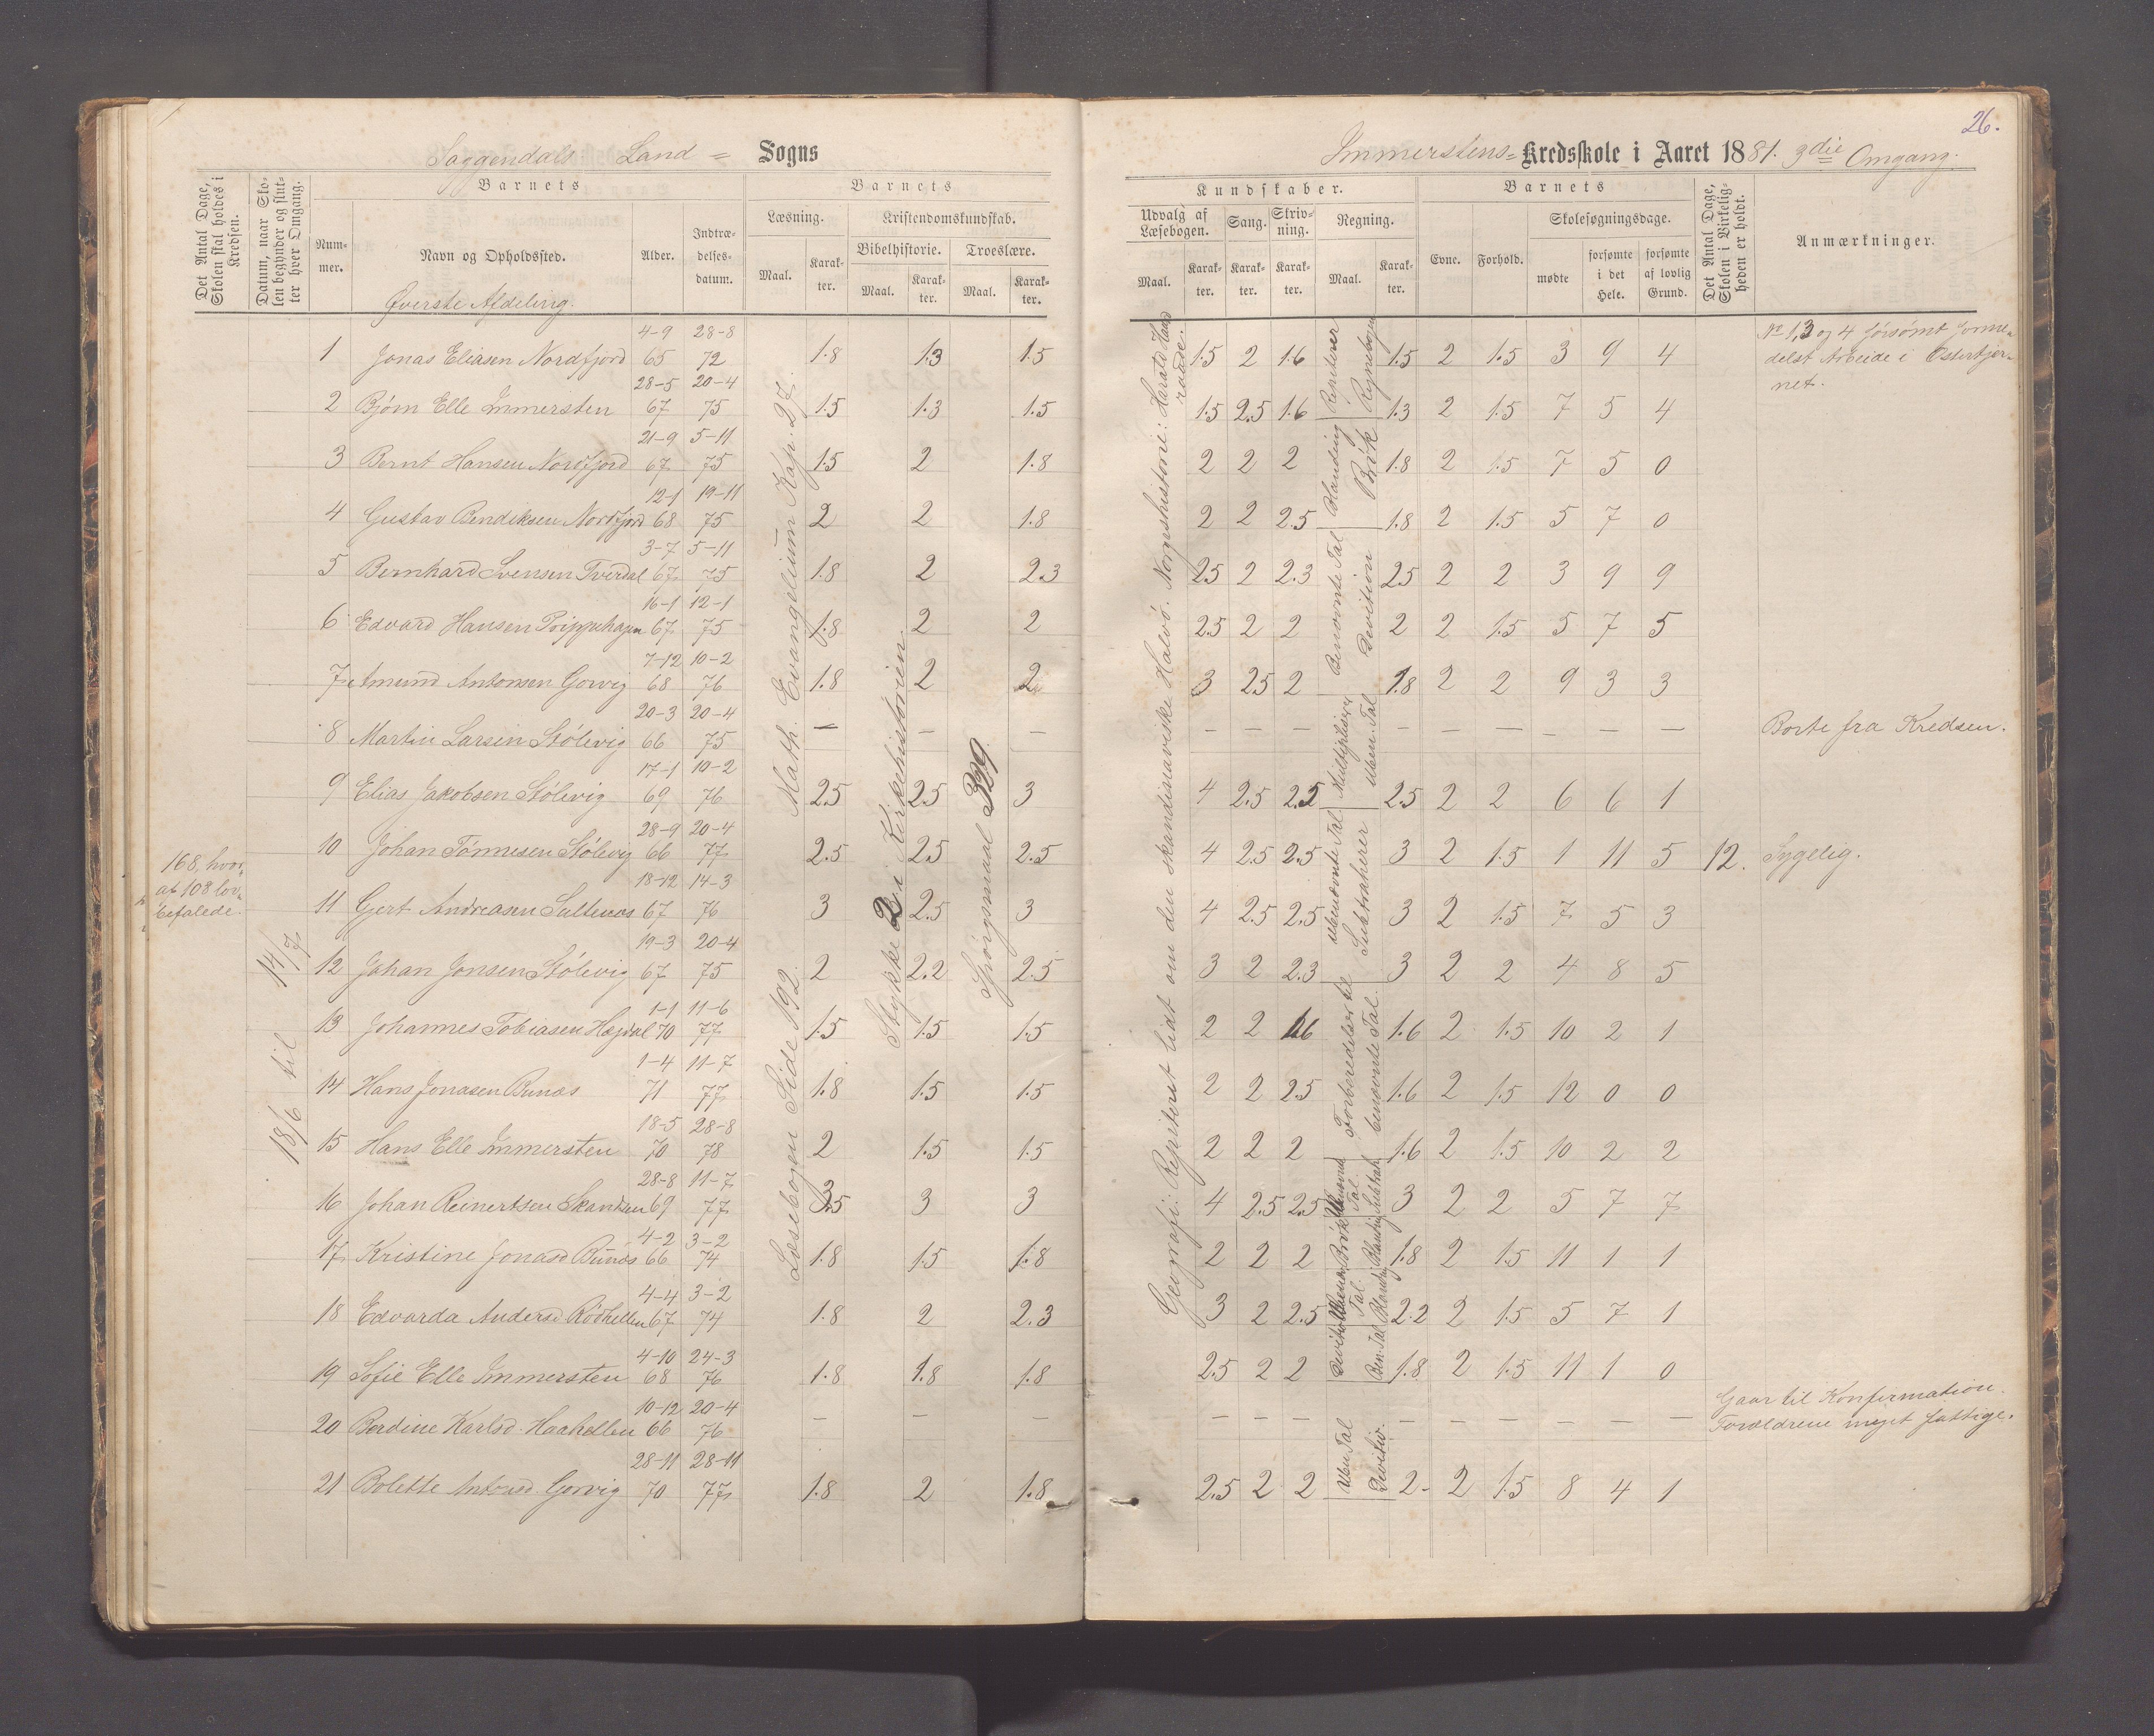 26.
Soggendals Land = Sogns
Immerstens = Kredsskole i Aaret 1881. 3die Omgang.
Det Antal Dage, Skolen skal holdes i Kredsen.
Datum, naar Skolen begynder og slutter hver Omgang.
Barnets
Nummer.
Navn og Opholdssted.
Alder.
Indtrædelsesdatum.
Barnets
Læsning.
Maal.
Karakter.
Kristendomskundskab.
Bibelhistorie.
Maal.
Karakter.
Troeslære.
Maal.
Karakter.
Kundskaber.
Udvalg af Læsebogen.
Maal.
Karakter.
Sang.
Karakter.
Skrivning.
Karakter.
Regning.
Maal.
Karakter.
Barnets
Evne.
Forhold.
Skolesøgningsdage.
mødte
forsømte i det Hele.
forsømte af lovlig Grund.
Det Antal Dage, Skolen i Virkeligheden er holdt.
Anmærkninger.
Øverste Afdeling.
168, hvor-
af 108 lov-
befalede.
18/6 til 14/7
Læsebogen Side 192. Math. Evangelium Kap. 27.
Stykke 2 i Kirkehistorien
Spörgsmaal 329
Geografi: Repitert lidt om den skandinaviske Halvö. Norgeshistorie: Harald Haardraade.
Repiterer Regnebogen
Blanding Brök
Benævnte Tal Devition
Multiplicerer Uben. Tal
Ubenævnte Tal Subtraherer
Forberedelse til benævnte Tal.
Uben Tal Devition
1 Jonas Eliasen Nordfjord 4-9 65 28-8 72 1.8 1.3 1.5 1.5 2 1.6 1.5 2 1.5 3 9 4 No 1, 3 og 4 försømt formedelst Arbeide i Østerkjernet.
2 Bjørn Elle Immersten 28-5 67 20-4 75 1.5 1.3 1.5 1.5 2.5 1.6 1.3 2 1.5 7 5 4
3 Bernt Hansen Nordfjord 21-9 67 5-11 75 1.5 2 1.8 2 2 2 1.8 2 1.5 7 5 0
4 Gustav Bendiksen Nordfjord 12-1 68 19-11 75 2 2 1.8 2 2 2.5 1.8 2 1.5 5 7 0
5 Bernhard Svensen Tverdal 3-7 67 5-11 75 1.8 2 2.3 2.5 2 2.3 2.5 2 2 3 9 9
6 Edvard Hansen 16-1 67 12-1 75 1.8 2 2 2.5 2 2 2 2 1.5 5 7 5
7 Amund Antonsen Gorvig 7-12 68 10-2 76 1.8 2 2 3 2.5 2 1.8 2 2 9 3 3
8 Martin Larsen Stölevig 20-3 66 20-4 75 – – – – – – – – – – – – Borte fra Kredsen.
9 Elias Jakobsen Stölevig 17-1 69 10-2 76 2.5 2.5 3 4 2.5 2.5 2.5 2 2 6 6 1
10 Johan Tönnesen Stölevig 28-9 66 20-4 77 2.5 2.5 2.5 4 2.5 2.5 3 2 1.5 1 11 5 12. Sygelig.
11 Gjert Andreasen Sultenes 18-12 67 14-3 76 3 2.5 3 4 2.5 2.5 3 2 1.5 7 5 3
12 Johan Jonsen Stölevig 19-3 67 20-4 75 2 2.2 2.5 3 2 2.3 3 2 2 4 8 5
13 Johannes Tobiasen Hægdal 1-1 70 11-6 77 1.5 1.5 1.5 2 2 1.6 1.6 2 1.5 10 2 1
14 Hans Jonasen Bunæs 1-4 71 11-7 77 1.8 1.5 1.5 2 2 2.5 1.6 2 1.5 12 0 0
15 Hans Elle Immersten 18-5 70 28-8 78 2 1.5 1.5 2 2 2 1.6 2 1.5 10 2 2
16 Johan Reinertsen 28-8 69 11-7 77 3.5 3 3 4 2.5 2.5 3 2 2 5 7 7
17 Kristine Jonasd Bunæs 4-2 66 3-2 74 1.8 1.5 1.8 2 2 2 1.8 2 1.5 11 1 1
18 Edvarda Andersd Rödhellen 4-4 67 3-2 74 1.8 2 2.3 3 2 2.5 2.2 2 1.5 5 7 1
19 Sofie Elle Immersten 4-10 68 24-3 76 1.8 1.8 1.8 2.5 2 2 1.8 2 1.5 11 1 0
20 Berdine Karlsd. Haahellen 10-12 66 20-4 76 – – – – – – – – – – – – Gaar til Konfirmation. Forældrene meget fattige.
21 Bolette Antonsd. Gorvig 28-11 70 28-11 77 1.8 2 1.8 2.5 2 2 2 2 1.5 8 4 1